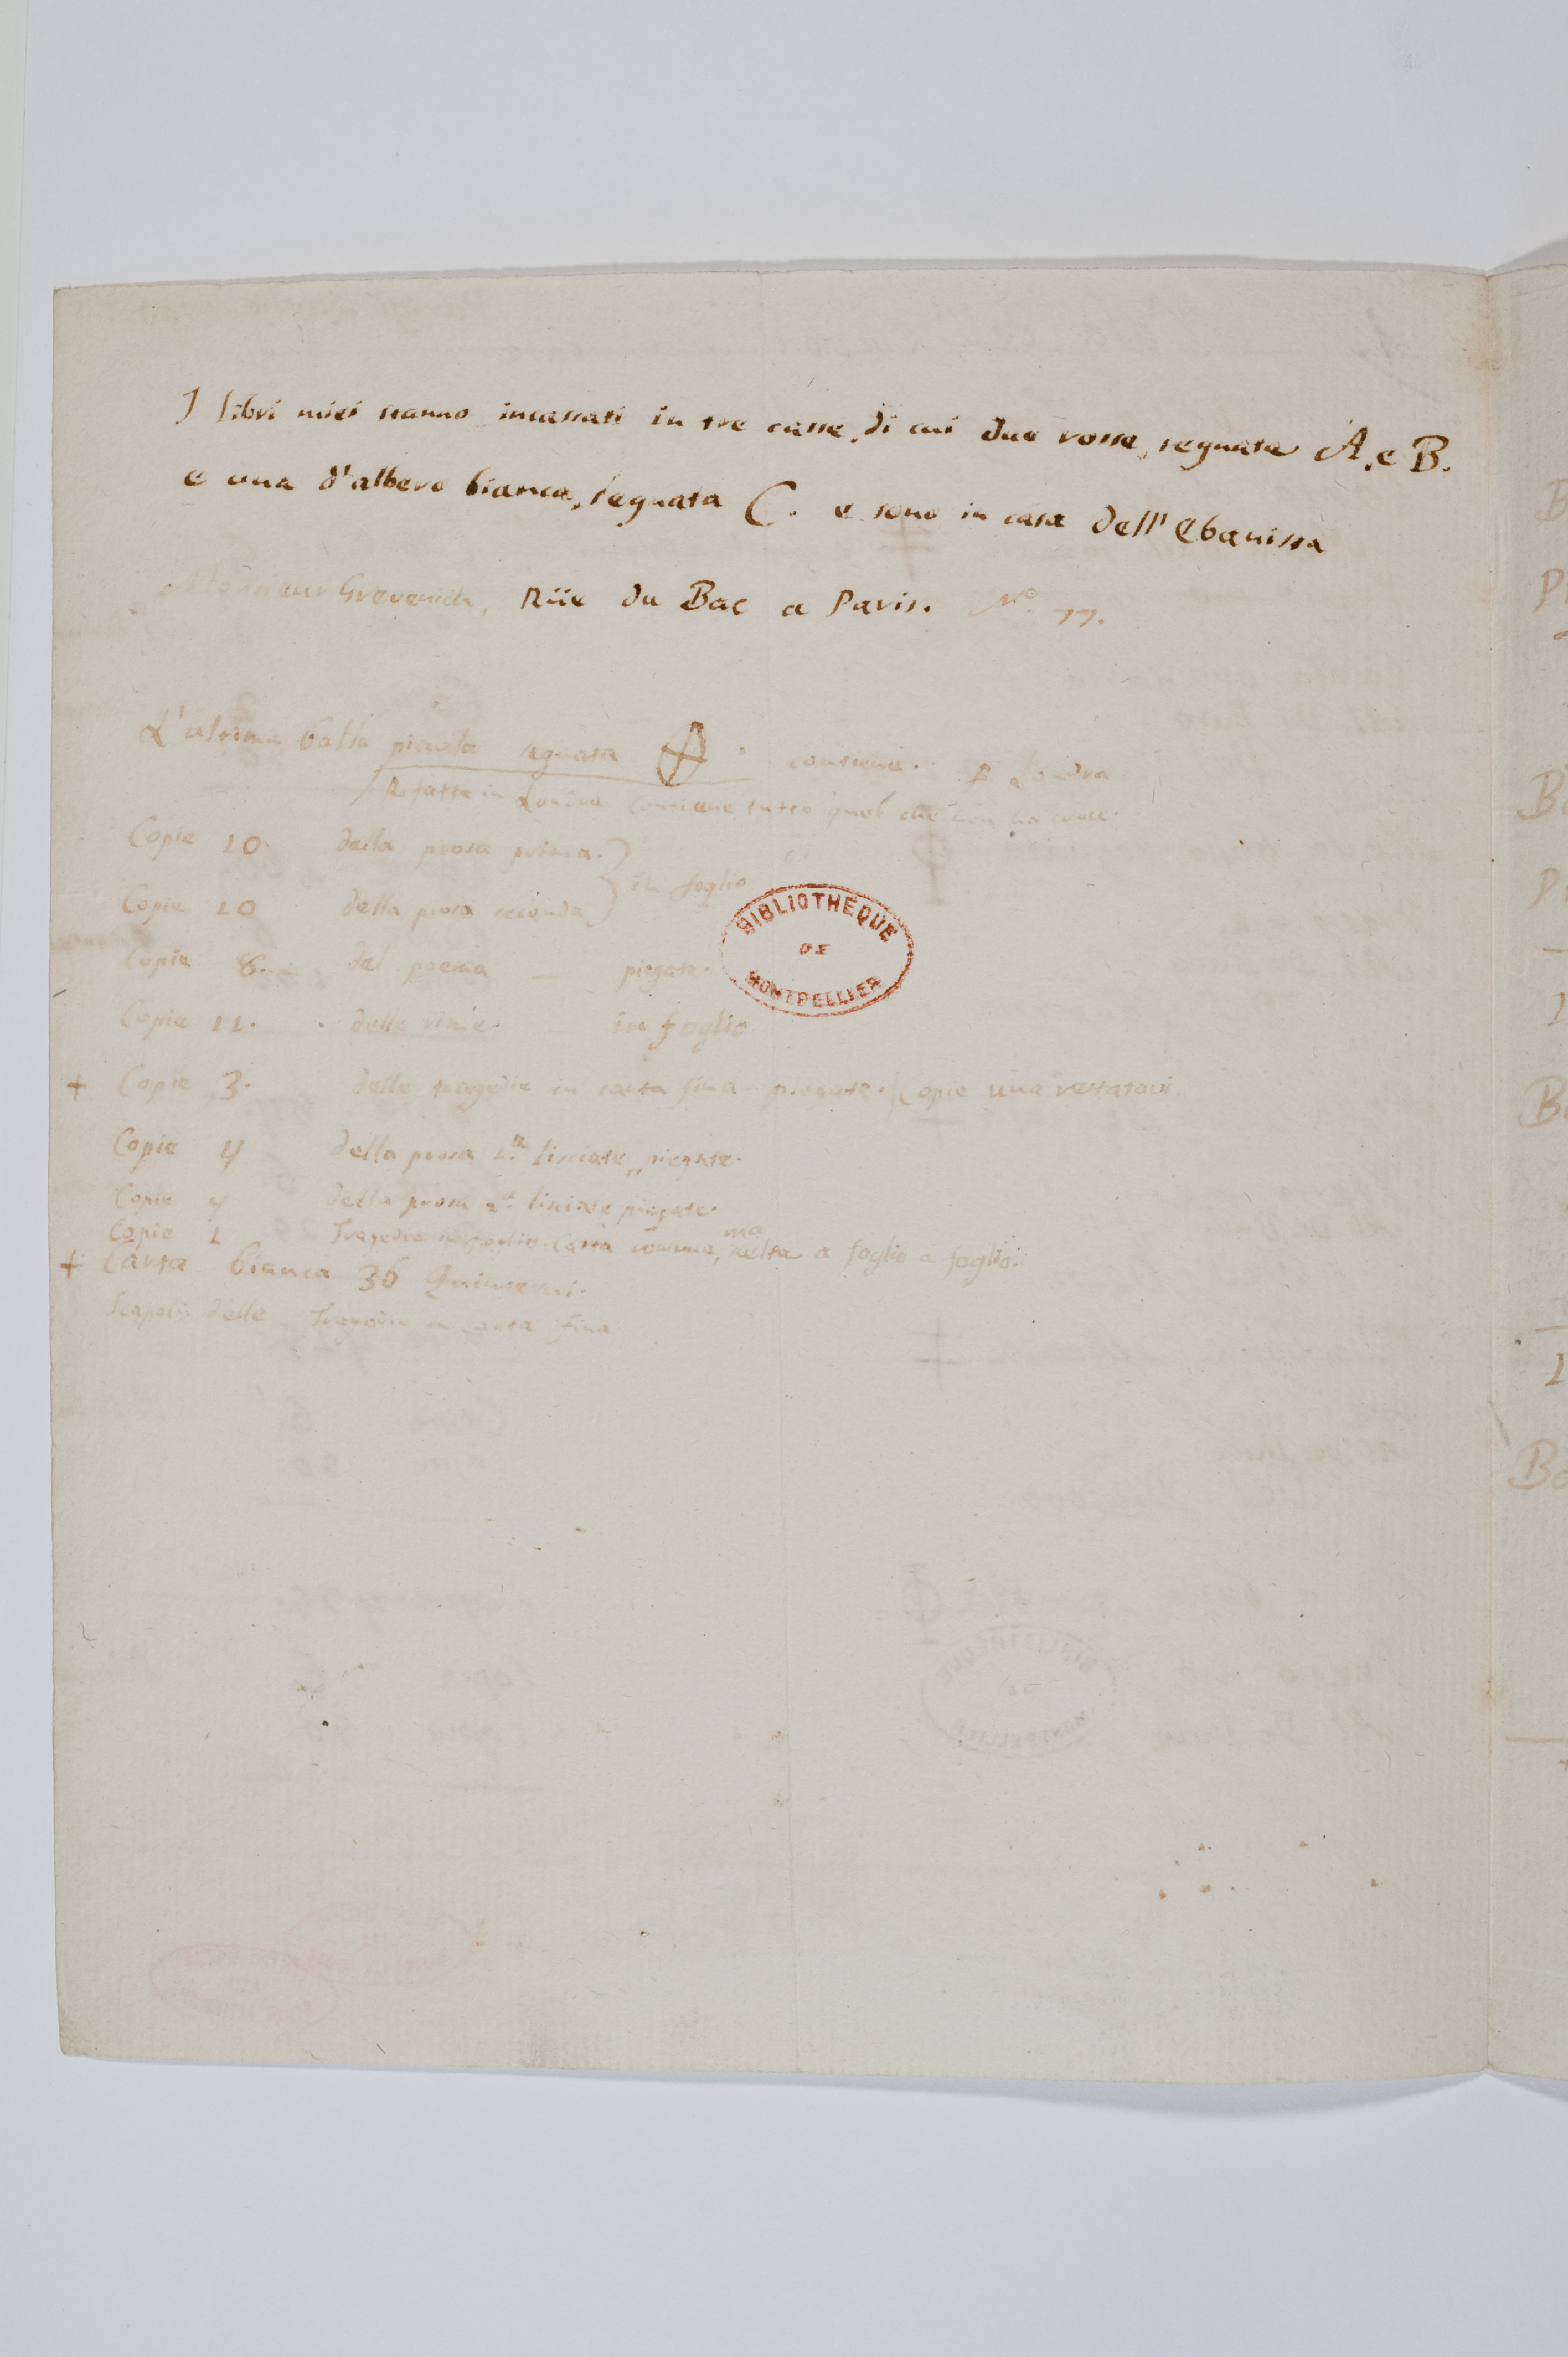 I libri miei stanno incassati in tre casse, di cui due rosse, segnate A. e B.
e una d'albero bianca, segnata C. e sono in casa dell' Ebanista
Monsieur Grevenich, Rüe du Bac a Paris. N.º 77.
L'ultima balla piccola segnata contiene. a Londra
Rifatta in Londra contiene tutto quel che non ha croce.
Copie 10. della prosa prima. } in foglio
Copie 10 della prosa seconda }
BIBLIOTHÈQUE
DE
MONTPELLIER
Copie 8. del poema — piegate.
Copie 11. delle rime. in foglio
+ Copie 3. delle tragedie in carta fina piegate. Copie una restatavi.
Copie 4 della prosa 1.ª lisciate, piegate.
Copie 4 della prosa 2ª lisciate piegate.
Copie 1 Tragedie carta comune, ma scelta a foglio a foglio.
+ Carta bianca 36 Quinterni.
Scapoli delle Tragedie in carta fina
B
P
Bo
P
I
Bo
I
Bo